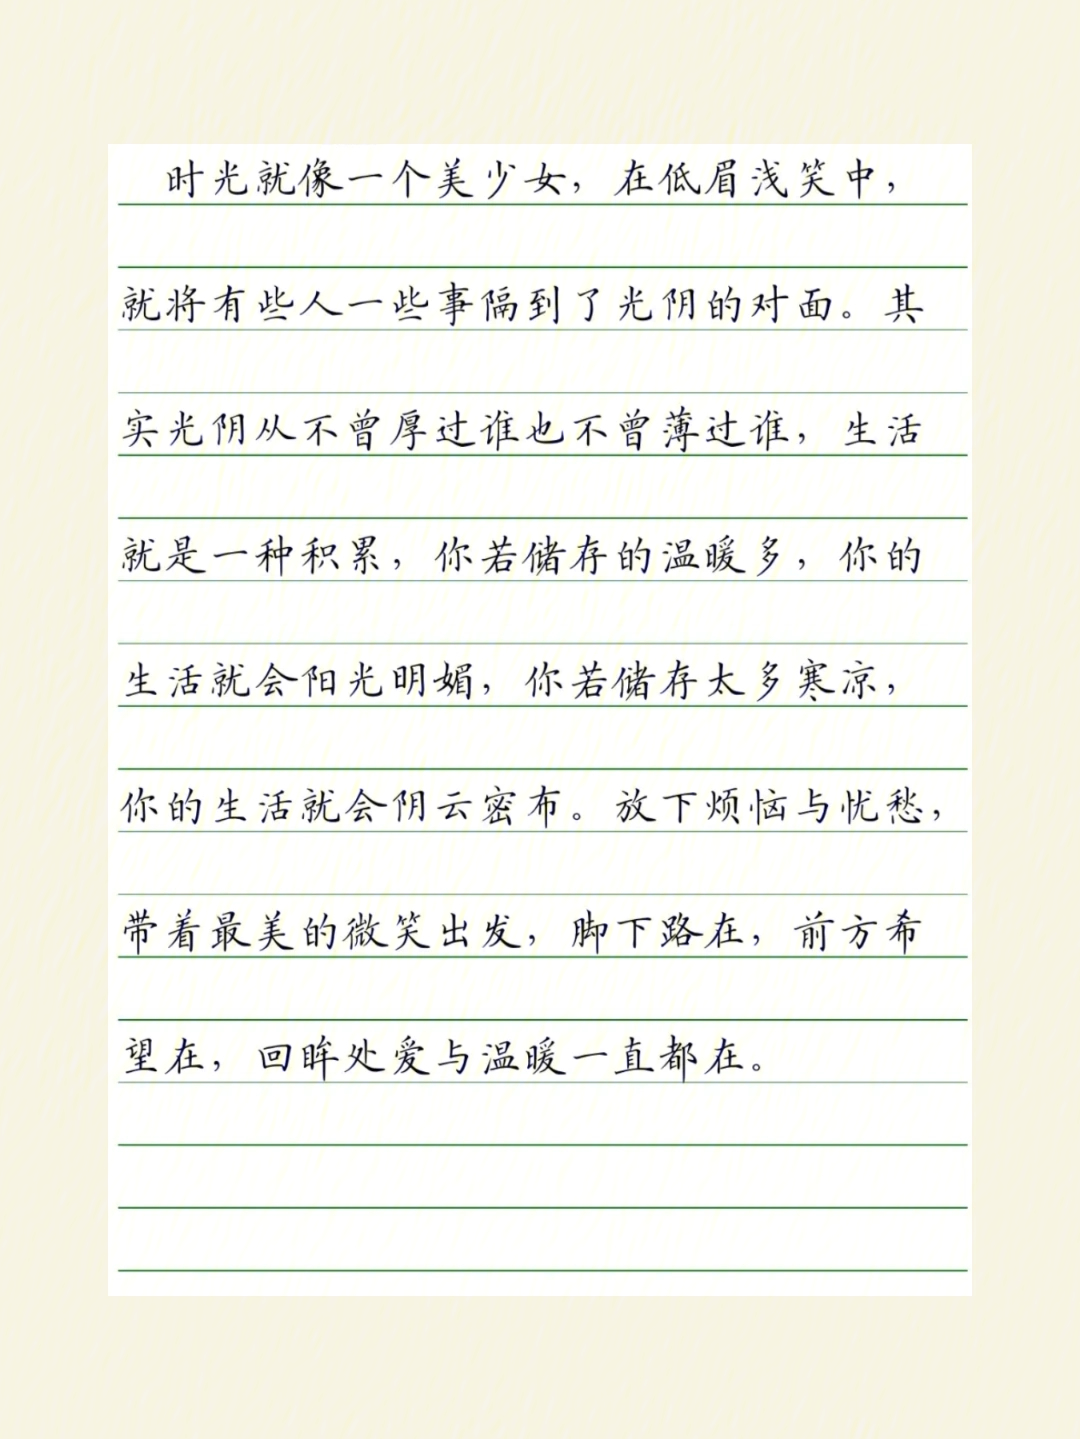 时光就像一个美少女，在低眉浅笑中，
就将有些人一些事隔到了光阴的对面。其
实光阴从不曾厚过谁也不曾薄过谁，生活
就是一种积累，你若储存的温暖多，你的
生活就会阳光明媚，你若储存太多寒凉，
你的生活就会阴云密布。放下烦恼与忧愁，
带着最美的微笑出发，脚下路在，前方希
望在，回眸处爱与温暖一直都在。